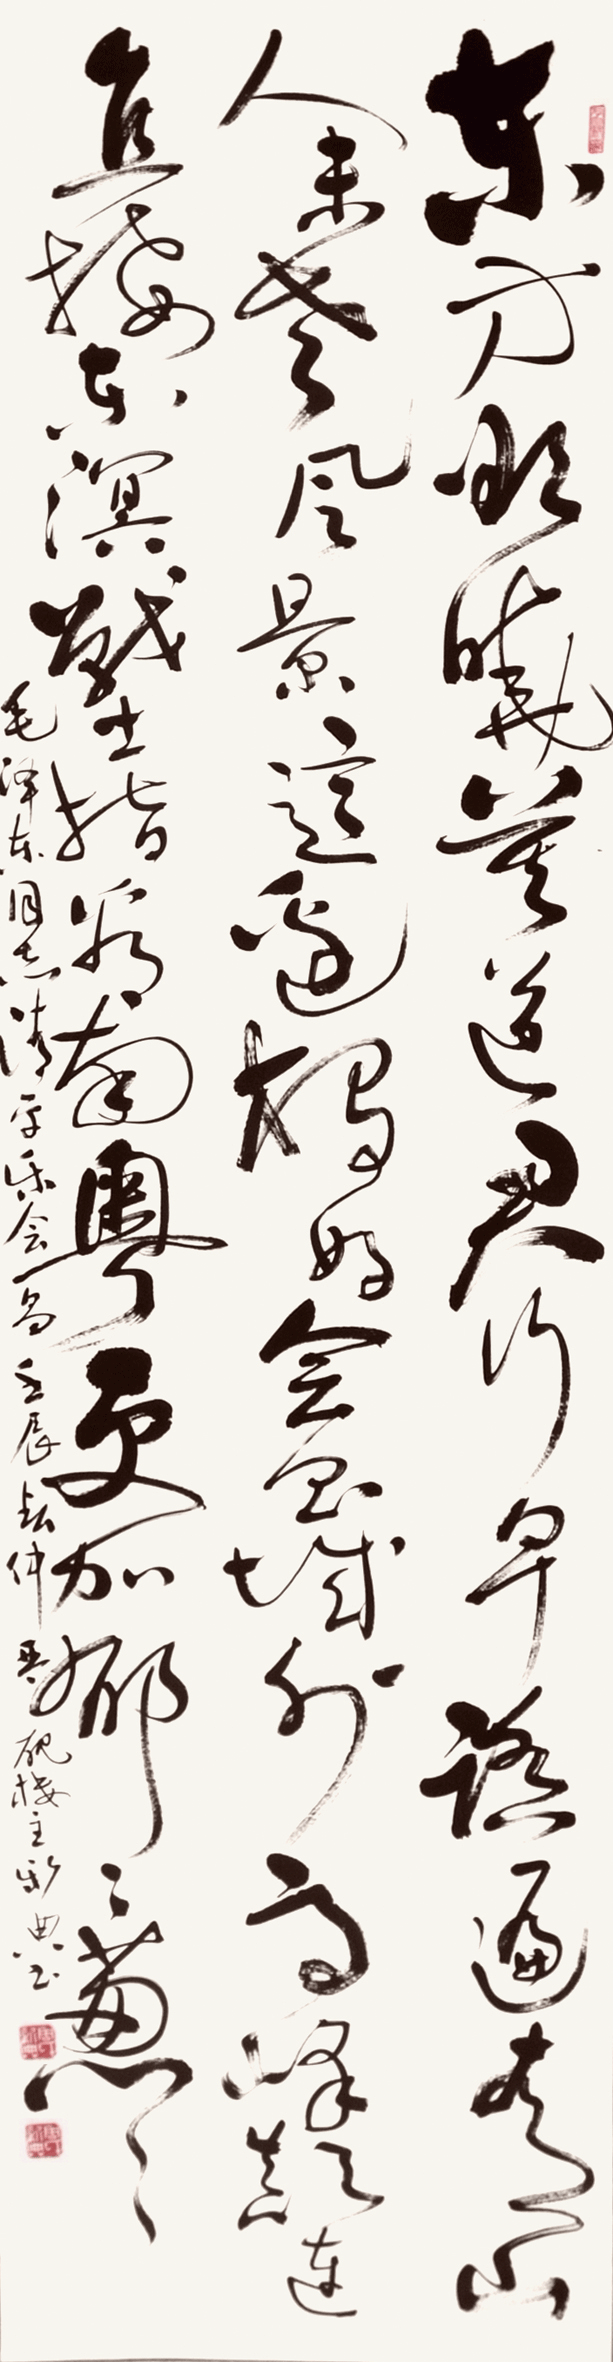 东方欲曉莫道君行早踏遍青山
人未老风景這邊独好会昌城外高峰颠连
直接东溟战士指看南粤更加郁〻葱〻
毛泽东同志清平乐会昌 壬辰秋仲 砚楼主新典书